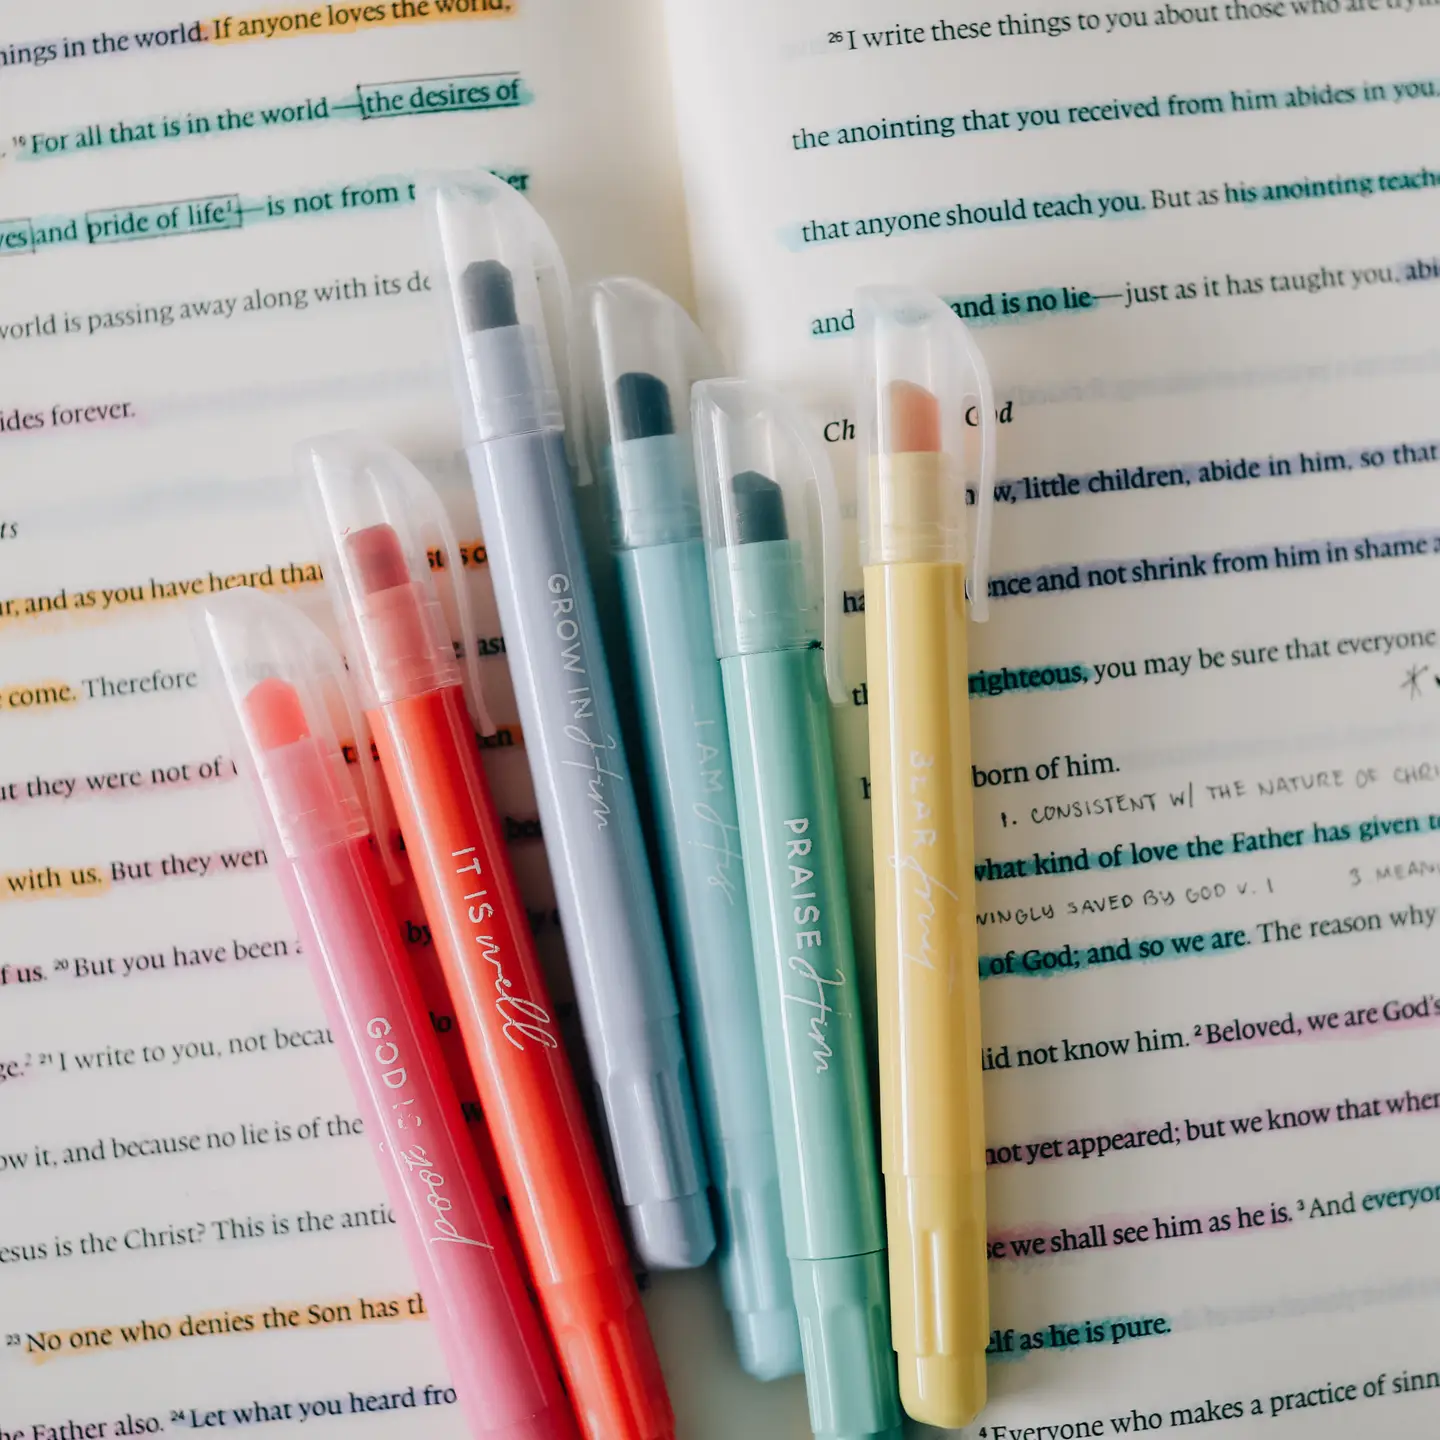 things in the world. If anyone loves the world,
16 For all that is in the world—the desires of
eyes and pride of life¹—is not from the Father
world is passing away along with its de
abides forever.
ts
ur, and as you have heard that
come. Therefore
ut they were not of
with us. But they wen
of us. 20 But you have been
ge.² 21 I write to you, not becau
ow it, and because no lie is of the
esus is the Christ? This is the antic
23 No one who denies the Son has th
he Father also. 24 Let what you heard fro
26 I write these things to you about those who are tryin
the anointing that you received from him abides in you,
that anyone should teach you. But as his anointing teache
and is no lie—just as it has taught you, abi
Ch God
now, little children, abide in him, so that
ence and not shrink from him in shame a
righteous, you may be sure that everyone
born of him.
1. CONSISTENT W/ THE NATURE OF CHRI
what kind of love the Father has given to
NINGLY SAVED BY GOD V. 1 3 MEAN
of God; and so we are. The reason why
did not know him. 2 Beloved, we are God's
not yet appeared; but we know that when
se we shall see him as he is. 3 And everyon
elf as he is pure.
4 Everyone who makes a practice of sinn
GOD IS good
IT IS well
GROW IN Him
I AM His
PRAISE Him
BEAR fruit